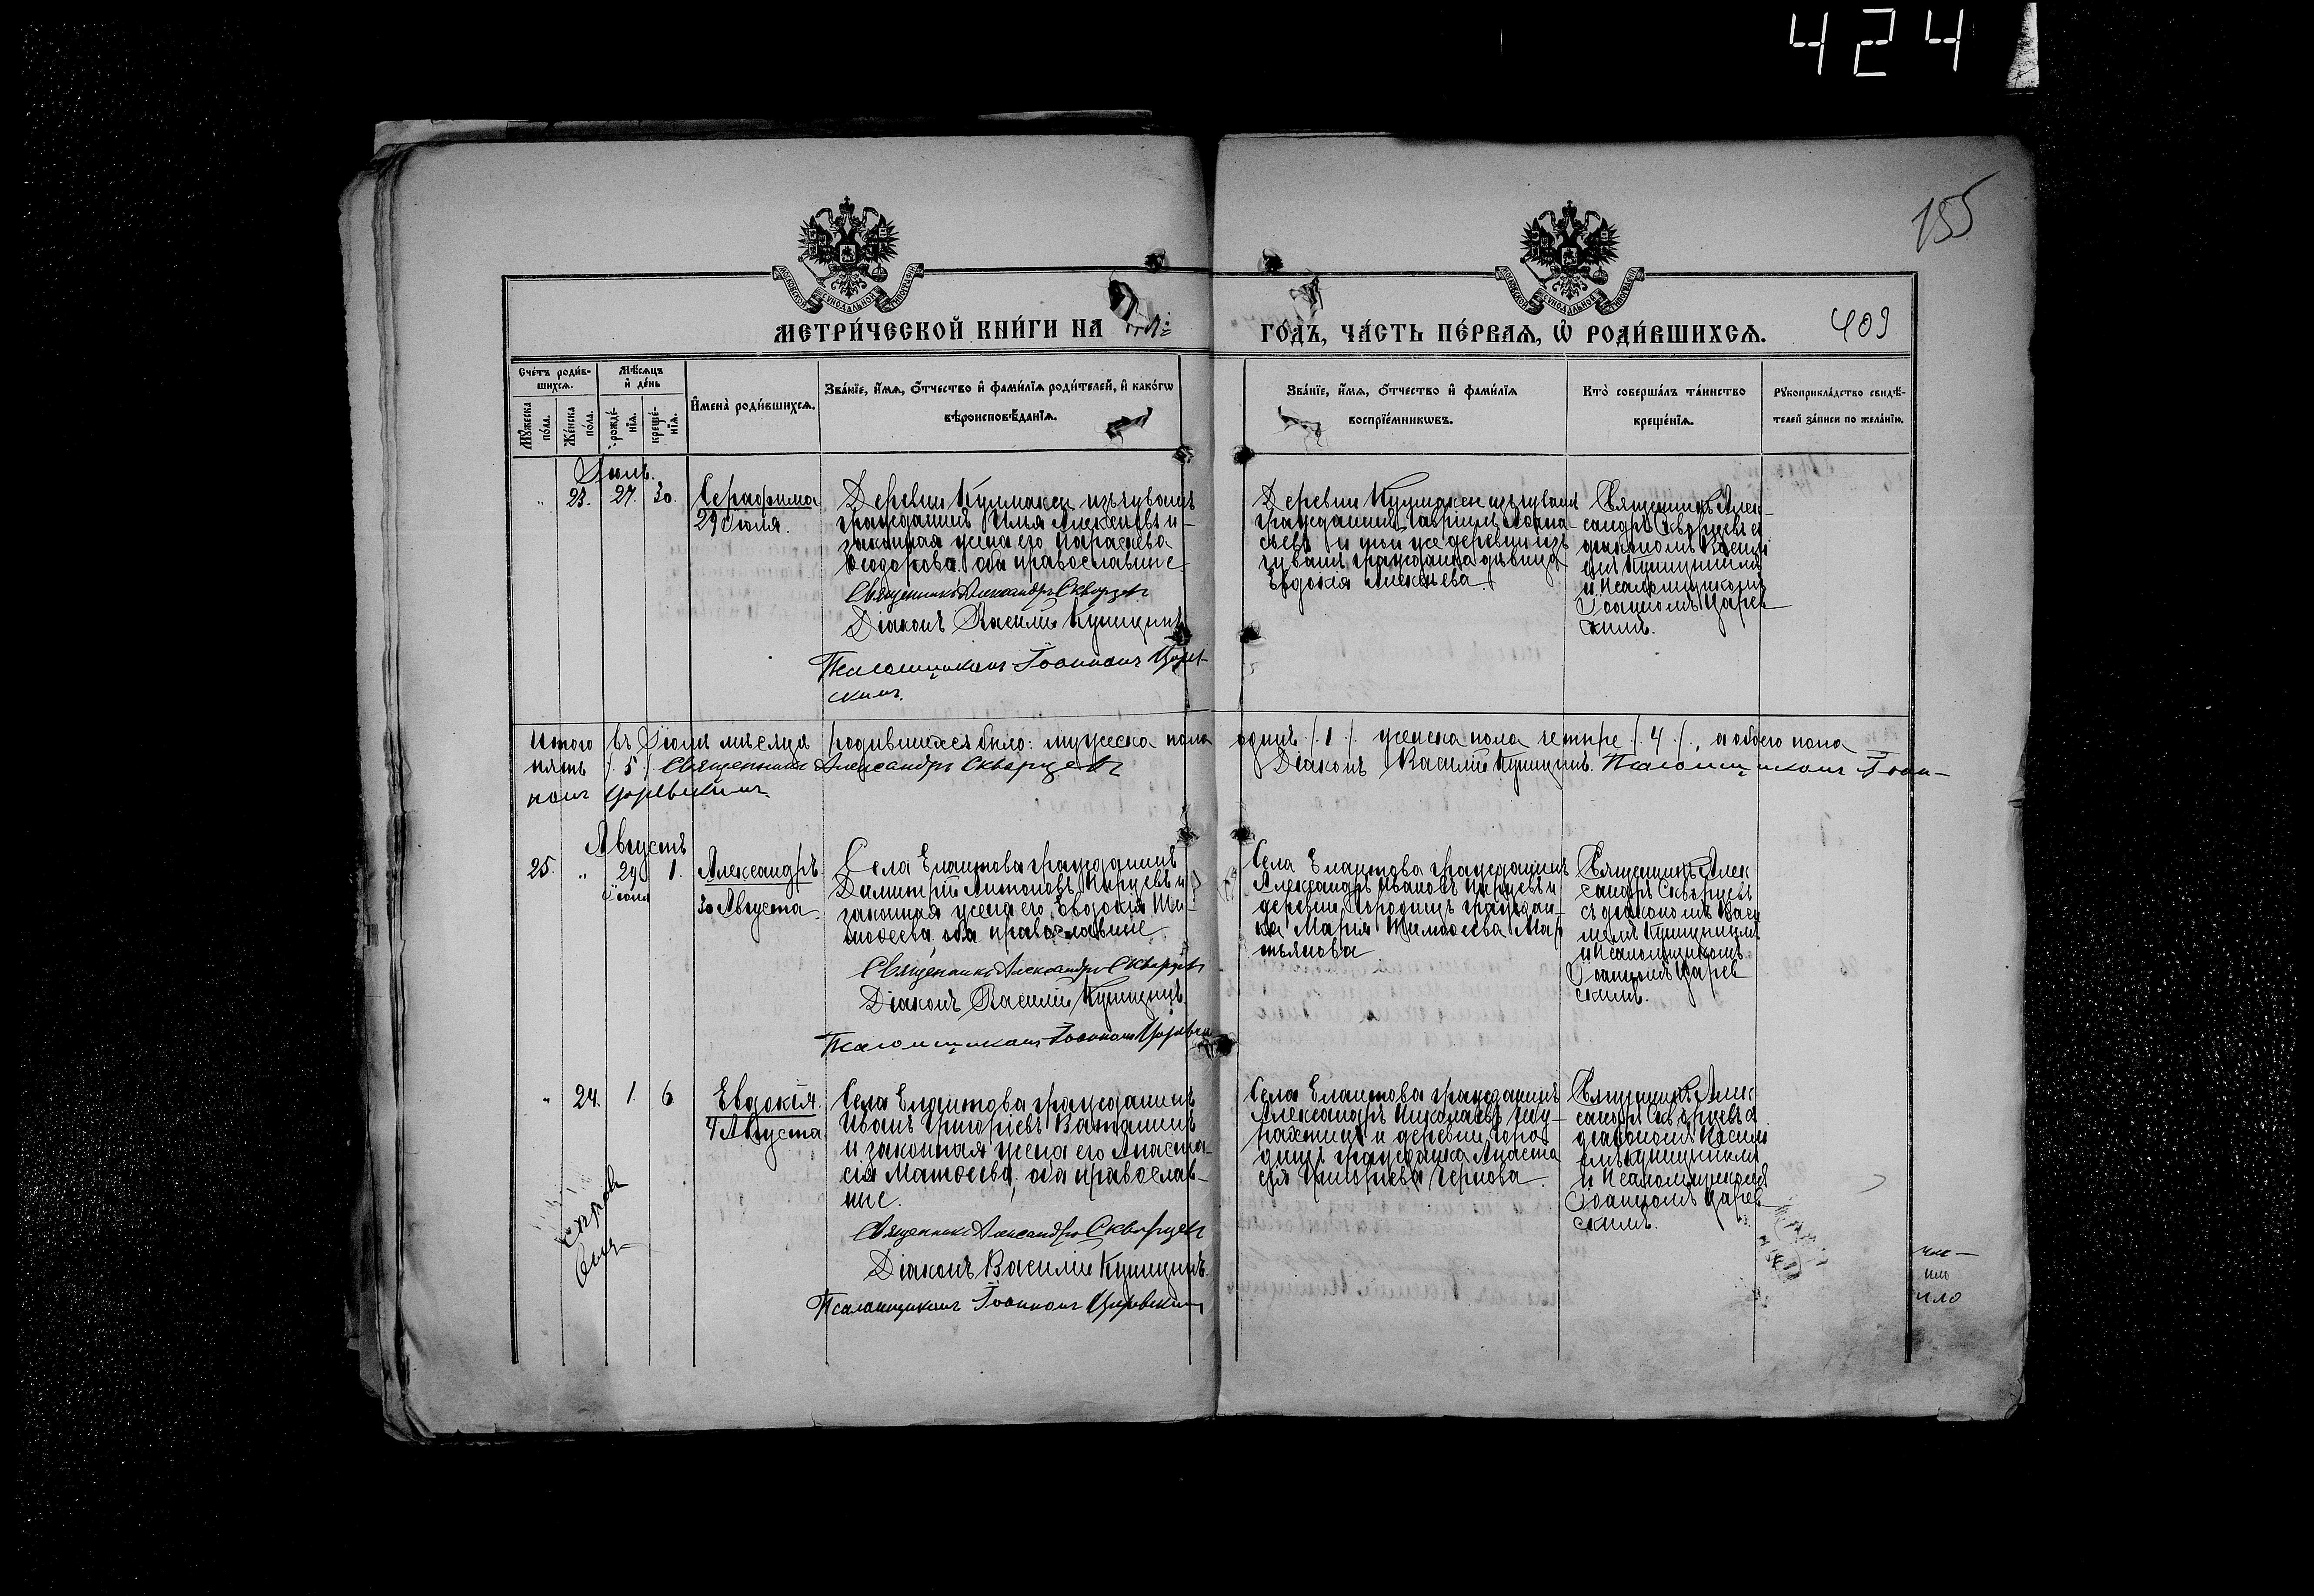 424
155
МОСКОВСКОЙ СУНОДАЛЬНОЙ ТИПОГРАФІИ
МОСКОВСКОЙ СУНОДАЛЬНОЙ ТИПОГРАФІИ
МЕТРИ́ЧЕСКОЙ КНИ́ГИ НА
ГО́ДЪ, ЧА́СТЬ ПЕ́РВАѦ, Ѡ҆ РОДИ́ВШИХСѦ.
409
Сче́тъ роди́в-
шихсѧ.
Мѣ́сѧцъ
и҆ де́нь
Мꙋ́жеска
по́ла.
Же́нска
по́ла.
рожде́-
нїѧ.
креще́-
нїѧ.
И҆мена̀ роди́вшихсѧ.
Зва́нїе, и҆́мѧ, ѻ҆́тчество и҆ фами́лїѧ роди́телей, и҆ како́гѡ
вѣроисповѣ́данїѧ.
Зва́нїе, и҆́мѧ, ѻ҆́тчество и҆ фами́лїѧ
воспрїе́мникѡвъ.
Кто̀ соверша́лъ та́инство
креще́нїѧ.
Рꙋкоприкла́дство свидѣ́-
телей за́писи по жела́нїю.
Іюль.
" 23. 27. 30.
Серафима
29 Іюля.
Деревни Кулмакси изъ чувашъ
гражданинъ Илья Алексѣевъ и
законная жена его Параскева
Ѳеодорова. оба православные
Священникъ Александръ Скворцевъ
Діаконъ Василій Куницынъ
Псаломщикъ Іоаннъ Царев-
скій.
Деревни Кулмакси изъ чувашъ
гражданинъ Гавріилъ Аѳана-
сьевъ и той же деревни изъ
чувашъ гражданка дѣвица
Евдокія Алексѣева.
Священникъ Алек-
сандръ Скворцевъ съ
діакономъ Васил
емъ Куницынымъ
и псаломщикомъ
Іоанномъ Царев
скимъ.
Итого въ Іюлѣ мѣсяцѣ родившихся было: мужеска пола одинъ /1/ женска пола четыре /4/, а обоего пола
пять /5/ Священникъ Александръ Скворцевъ Діаконъ Василій Куницынъ. Псаломщикъ Іоан-
нъ Царевскій.
Августъ
25. " 29 1.
Іюля
Александръ
30 Августа
Села Елаутова гражданинъ
Димитрій Антоновъ и
законная жена его Евдокія Ти-
моѳеева, оба православные
Священникъ Александръ Скворцевъ
Діаконъ Василій Куницынъ.
Псаломщикъ Іоаннъ Царевск
Села Елаутова гражданинъ
Александръ Ивановъ и
деревни Городищъ граждан-
ка Марія Тимоѳеева Мар
тьянова
Священникъ Алек
сандръ Скворцевъ
съ діакономъ Васи
ліемъ Куницынымъ
и псаломщикомъ
Іоанномъ Царев
скимъ.
" 24. 1. 6.
Евдокія.
4 Августа
Села Елаутова гражданинъ
Иванъ Григорьевъ Ваташинъ
и законная жена его Анаста-
сія Матѳеева, оба православ-
ные.
Священникъ Александръ Скворцевъ
Діаконъ Василій Куницынъ.
Псаломщикъ Іоаннъ Царевскій
Села Елаутова гражданинъ
Александръ Николаевъ
и деревни Горо
дищъ гражданка Анаста
сія Григорьева Чернова.
Священникъ Алек
сандръ Скворцевъ съ
діакономъ Васил
емъ Куницынымъ
и псаломщикомъ
Іоанномъ Царев
скимъ.